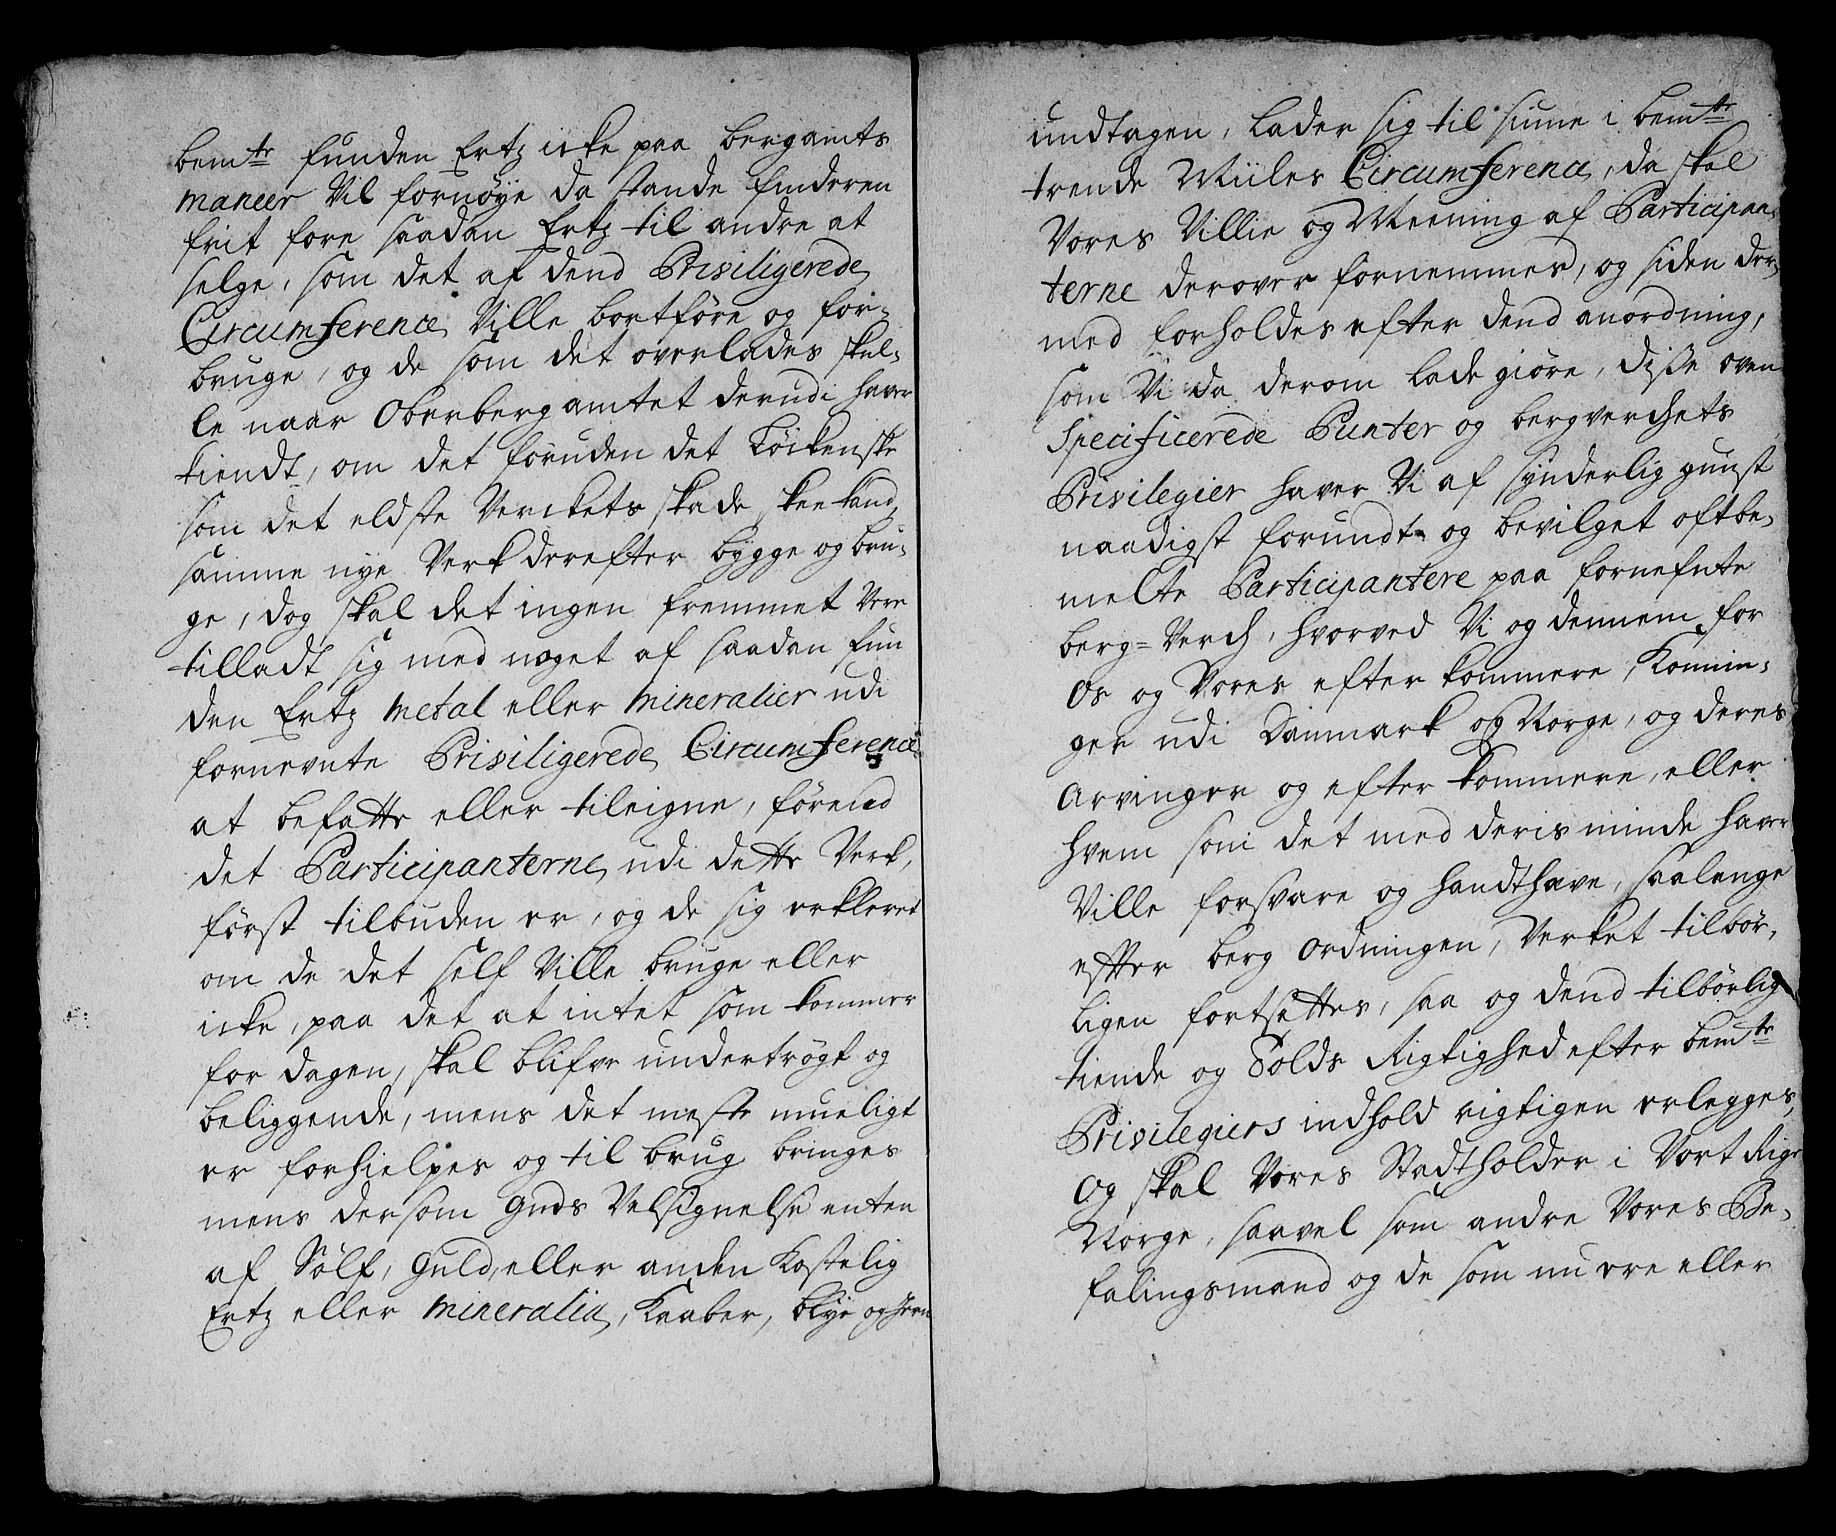 bemte funden Ertz icke paa bergamts
maneer Vil fornøye da stande finderen
frit fore saadan Ertz til andre at
selge, som det af dend Privilegerede
Circumference Ville bortføre og for-
bruge, og de som det overlades skul-
le naar Oberbergamtet derudi haver
kiendt, om det foruden det
som det eldste Verckets skade skee kand,
samme nye Verk derefter bygge og bru-
ge, dog skal det ingen fremmet Vere
tilladt sig med noget af saadan fun
den Ertz metal eller mineralier udi
fornevnte Privilegerede Circumference
at befatte eller tileigne, førend
det Participanterne udi dette Verk,
først tilbuden er, og de sig erkleret
om de det self Ville bruge eller
icke, paa det at intet som kommer
for dagen, skal blifve undertrögt og
beliggende, mens det meste mueligt
er forhielpes og til brug bringes
mens dersom Guds Velsignelse enten
af Sölf, Guld, eller anden Kostelig
Ertz eller mineralia, Kaaber, blye og Jern
undtagen, lader sig til siune i bemte
trende Miiles Circumference, da skal
Vores Villie og Meening af Participan-
terne derover fornemmes, og siden der
med forholdes efter dend anordning,
som Vi da derom lade giöre, disse oven
Specificerede Puncter og bergverchets
Privilegier haver Vi af synderlig gunst
naadigst forundt og bevilget oftbe-
melte Participantere paa fornefnte
berg-Verch, hvorved Vi og dennem for
Os og Vores efterkommere, Konnin-
ger udi Danmark og Norge, og deres
Arvinger og efterkommere, eller
hvem som det med deris minde haver
Ville forsvare og handthave, saalenge
efter berg Ordningen, Verket tilbör-
ligen fortsettes, saa og dend tilbörlig
tiende og Tolds Rigtighed efter bemte
Privilegiers indhold rigtigen erlegges,
Og skal Vores Stadtholder i Vort Rige
Norge, saavel som andre Vores Be-
falingsmænd og de som nu ere eller